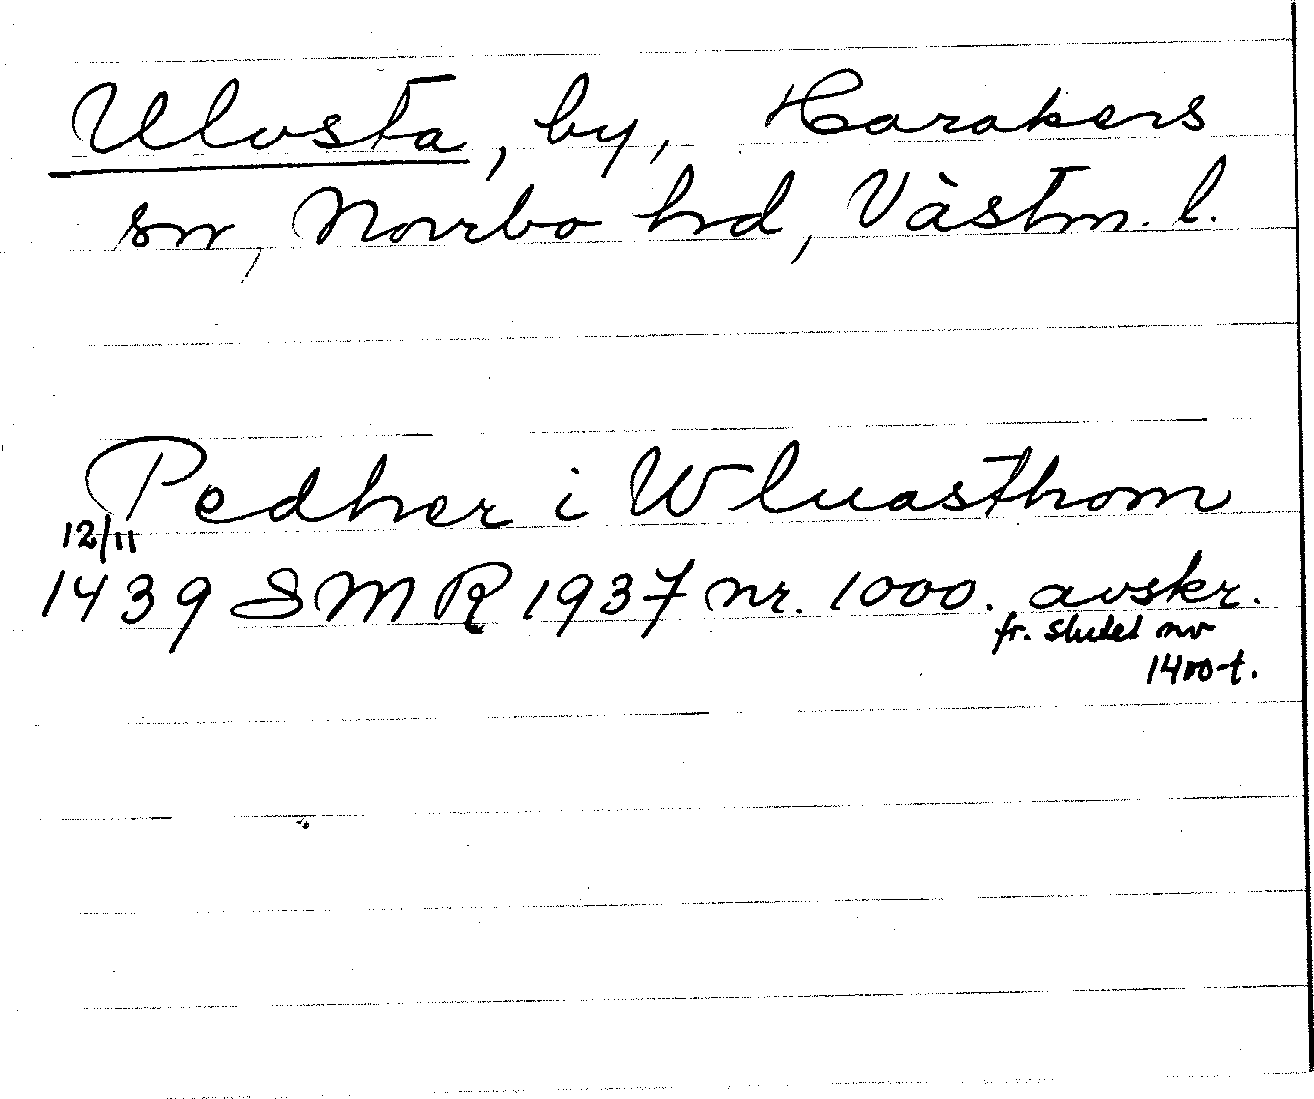 Ulvsta, by, Harakers
sn, Norrbo hd, Västm. l.
Pedher i Wluasthom
12/11
1439 SMR 1937 nr. 1000. avskr.
fr. slutet av
1400-t.